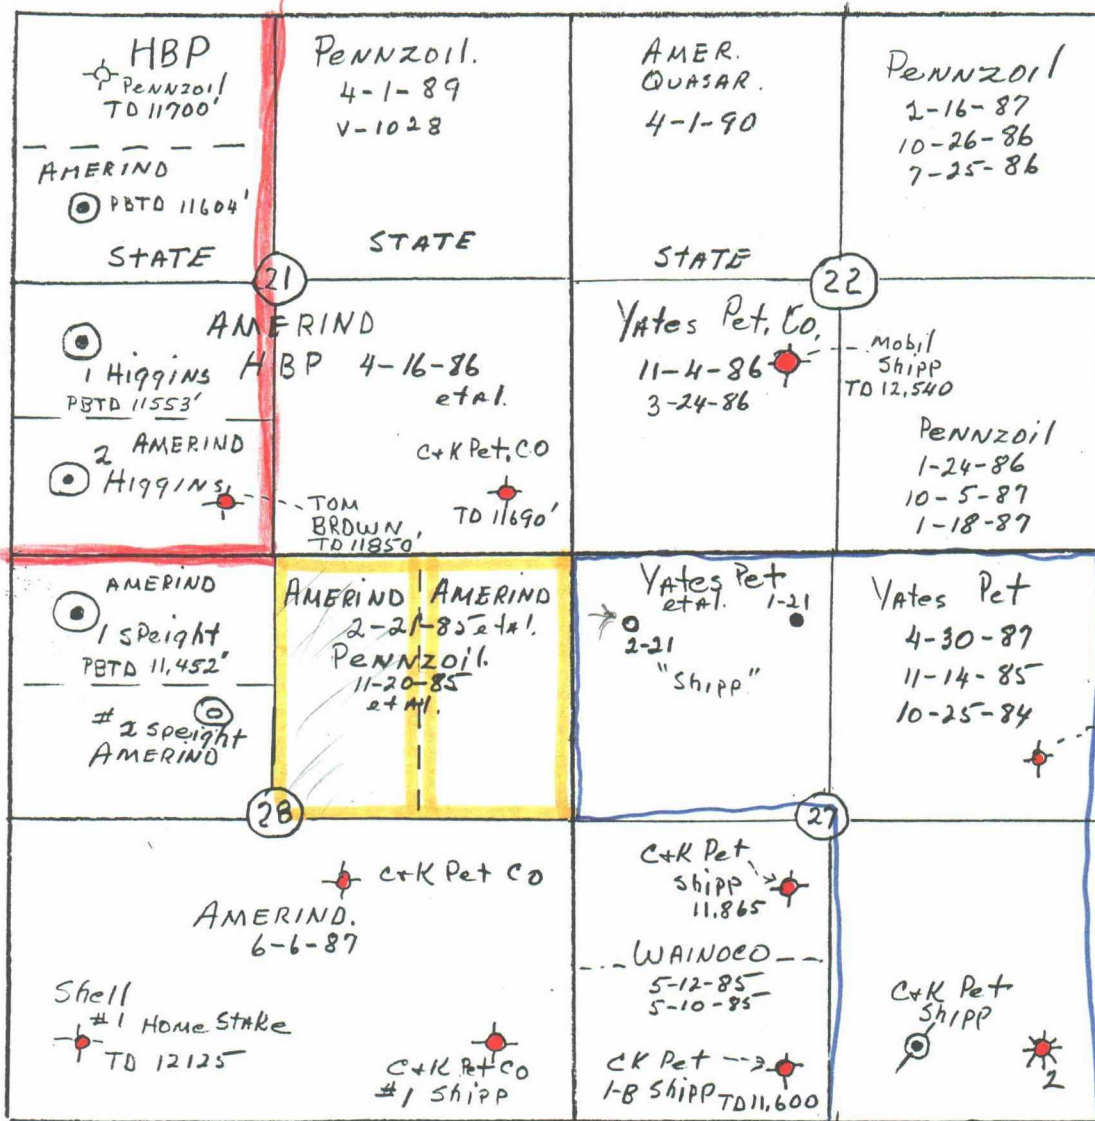 HBP
PENNZOIL
TD 11700'
AMERIND
PBTD 11604'
STATE
PENNZOIL.
4-1-89
V-1028
STATE
AMER.
QUASAR.
4-1-90
STATE
PENNZOIL
2-16-87
10-26-86
7-25-86
21
22
1 Higgins
PBTD 11553'
AMERIND
HBP 4-16-86
et Al.
2 AMERIND
HIGGINS
TOM
BROWN
TD 11850'
C+K Pet. CO
TD 11690'
Yates Pet. Co.
11-4-86
3-24-86
Mobil
Shipp
TD 12,540
PENNZOIL
1-24-86
10-5-87
1-18-87
AMERIND
1 Speight
PBTD 11,452'
# 2 Speight
AMERIND
AMERIND AMERIND
2-21-85 et Al.
PENNZOIL.
11-20-85
et Al.
Yates Pet
et Al. 1-21
2-21
"Shipp"
Yates Pet
4-30-87
11-14-85
10-25-84
28
27
C+K Pet CO
AMERIND.
6-6-87
Shell
#1 HOME STAKE
TD 12125
C+K Pet CO
#1 Shipp
C+K Pet
Shipp
11,865
WAINOCO
5-12-85
5-10-85
CK Pet
1-B Shipp TD 11,600
C+K Pet
Shipp
2